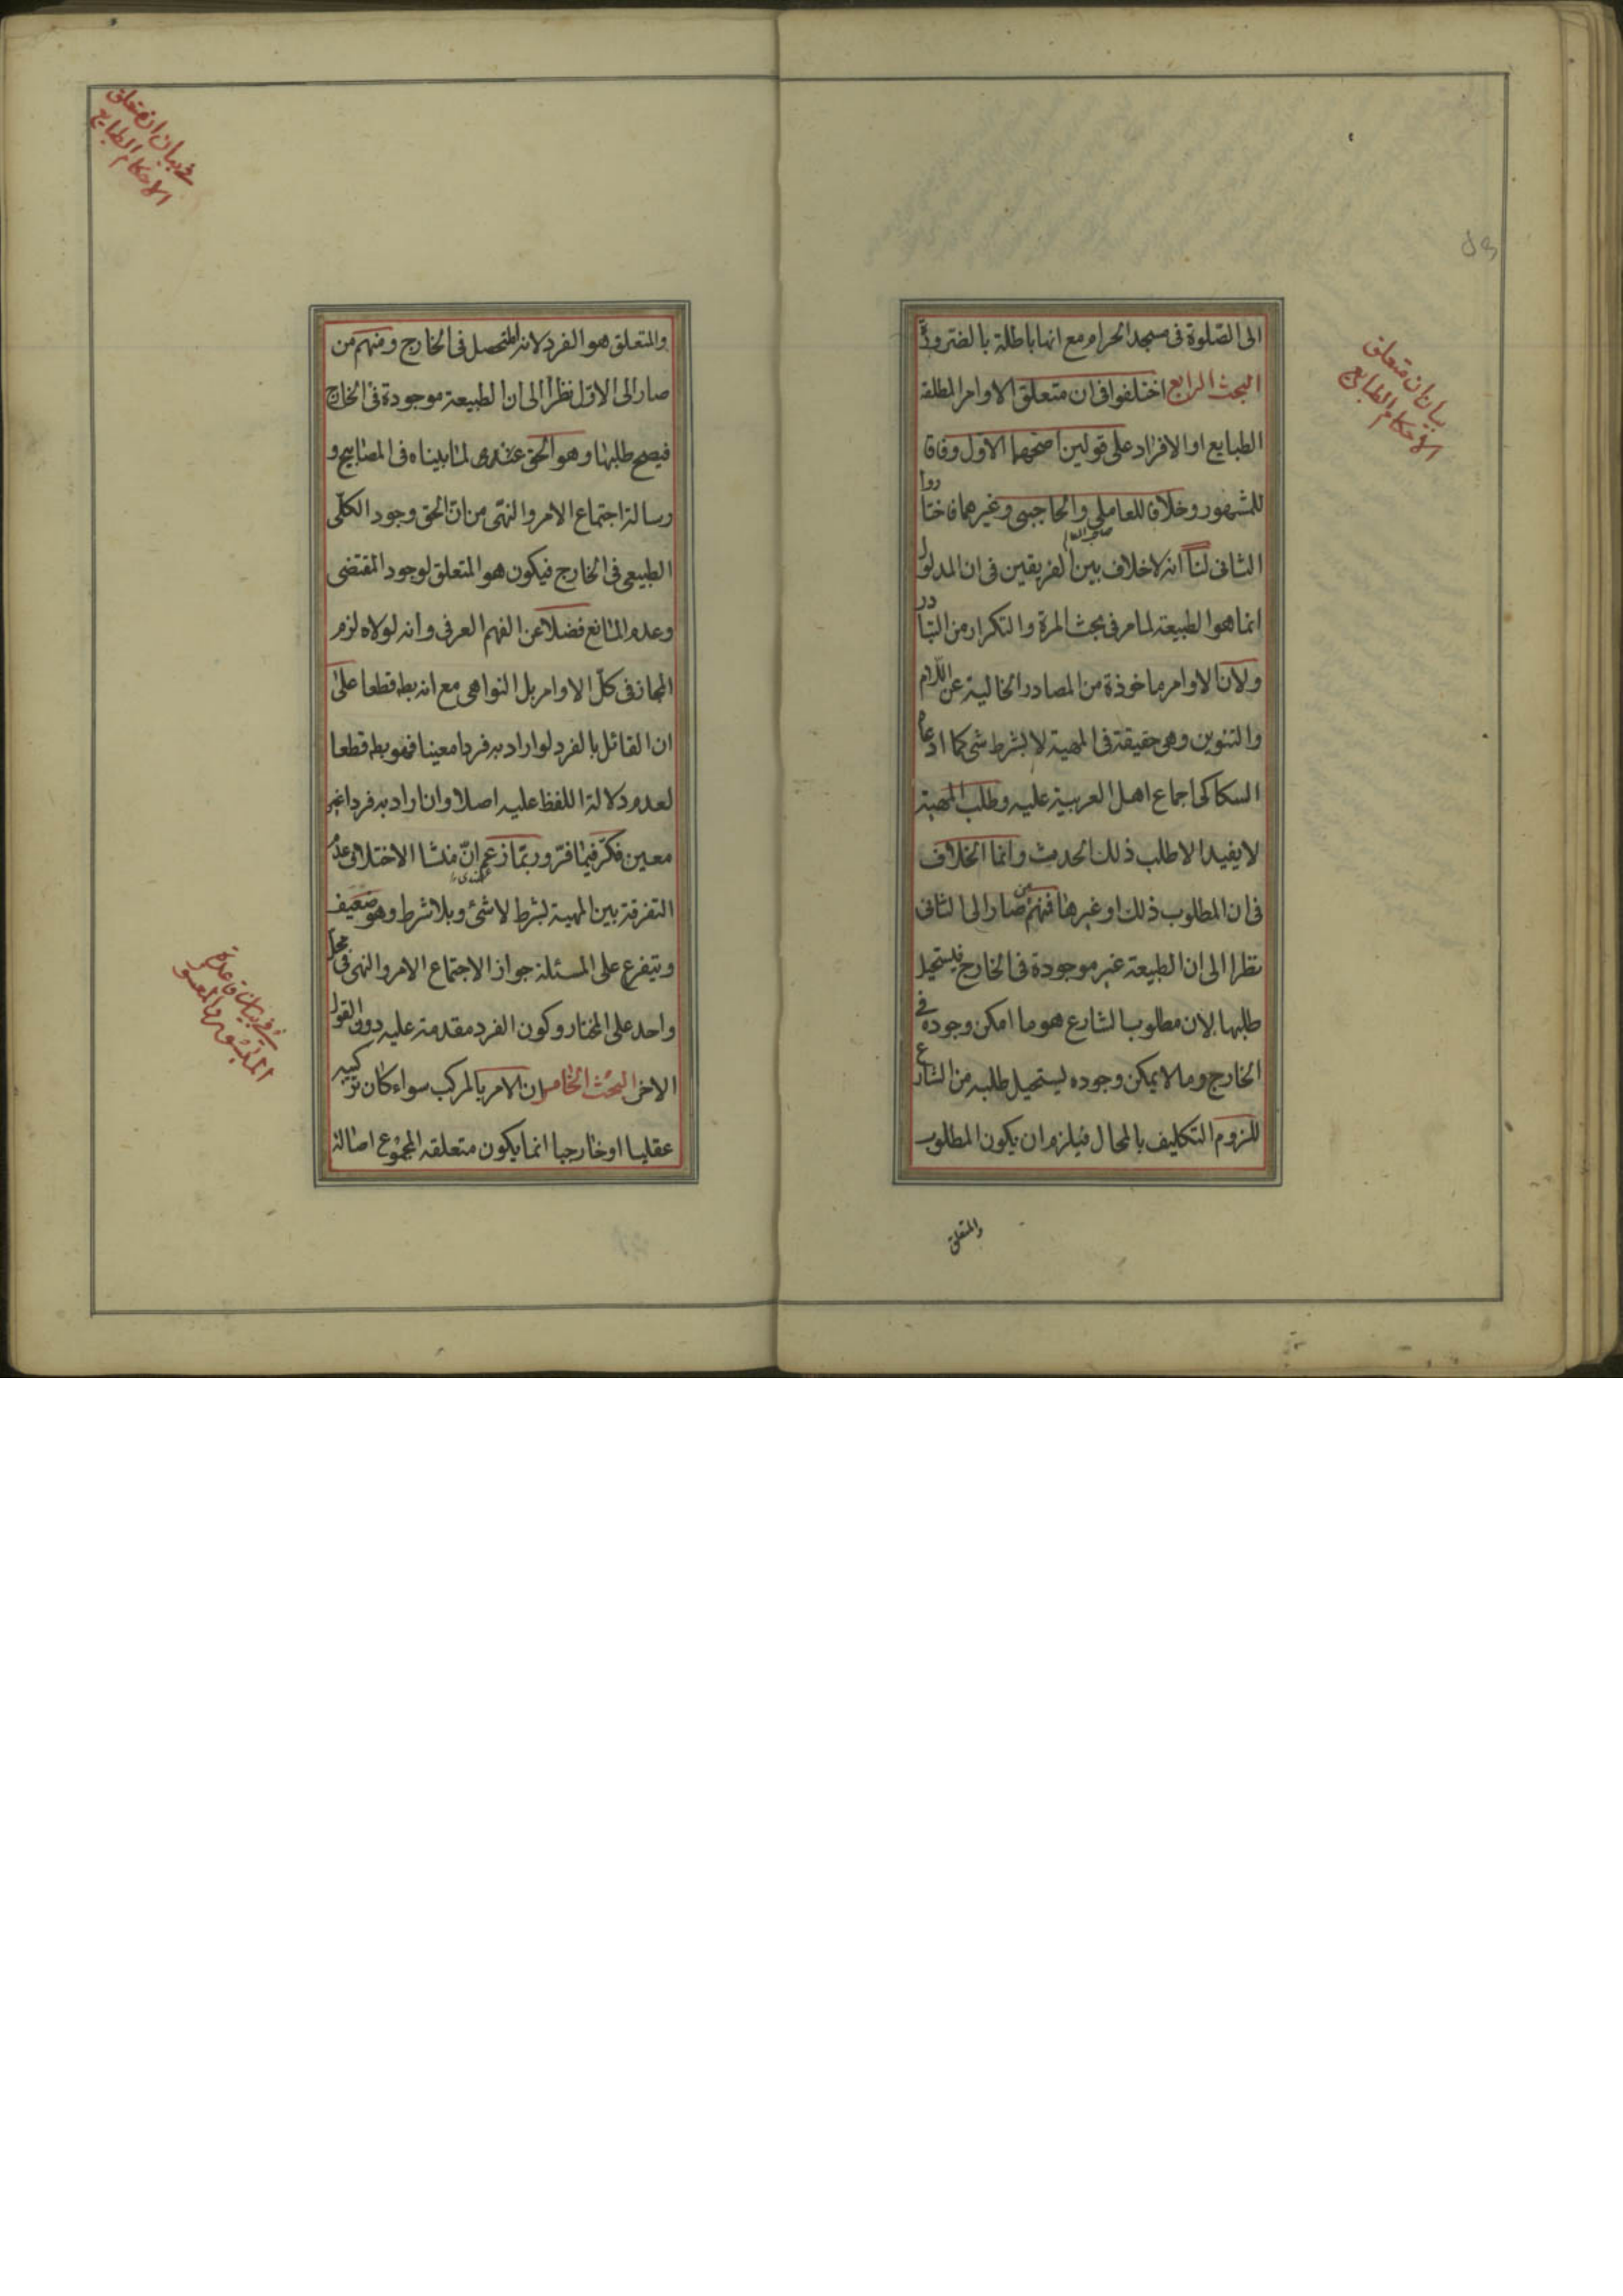 بيان ان متعلق
الاحكام الطبايع
الى الصلوة فى مسجد الحرام مع انها باطلة بالضرورة
البحث الرابع اختلفوا فى ان متعلق الاوامر المطلقة
الطبايع او الافراد على قولين اصحهما الاول وفاقا
للمشهور وخلافا للعاملى والحاجبى وغيرهما فاختاروا
الثانى لنا انه لاخلاف بين الفريقين فى ان المدلول
انما هو الطبيعة لما مر فى بحث المرة والتكرار من التبادر
ولان الاوامر ماخوذة من المصادر الخالية عن اللام
والتنوين وهى حقيقة فى المهية لا بشرط شى كما ادعاه
السكاكى اجماع اهل العربية عليه وطلب المهية
لا يفيد الا طلب ذلك الحدث وانما الخلاف
فى ان المطلوب ذلك او غيرها فمنهم من صار الى الثانى
نظرا الى ان الطبيعة غير موجودة فى الخارج فيستحيل
طلبها لان مطلوب الشارع هو ما امكن وجوده فى
الخارج وما لا يمكن وجوده يستحيل طلبه من الشارع
للزوم التكليف بالمحال فيلزم ان يكون المطلوب
والمتعلق
فى بيان ان متعلق
الاحكام الطبايع
والمتعلق هو الفرد لانه المتحصل فى الخارج ومنهم من
صار الى الاول نظرا الى ان الطبيعة موجودة فى الخارج
فيصح طلبها وهو الحق عندى لما بيناه فى المصابيح و
رسالة اجتماع الامر والنهى من ان الحق وجود الكلى
الطبيعى فى الخارج فيكون هو المتعلق لوجود المقتضى
وعدم المانع فضلا عن الفهم العرفى وانه لولاه لزم
المجاز فى كل الاوامر بل النواهى مع انه بط قطعا على
ان القائل بالفرد لو اراد به فردا معينا فهو بط قطعا
لعدم دلالة اللفظ عليه اصلا وان اراد به فردا غير
معين فكر فيما فر وربما زعم ان منشا الاختلاف عدم
التفرقة بين المهية بشرط لا شئ وبلا شرط وهو ضعيف
ويتفرع على المسئلة جواز الاجتماع الامر والنهى فى محل
واحد على المختار وكون الفرد مقدمة عليه دون القول
الاخر البحث الخامس ان الامر بالمركب سواء كان تركيبه
عقليا او خارجيا انما يكون متعلقه المجموع اصالة
فى بيان قاعدة
الميسور بالمعسور